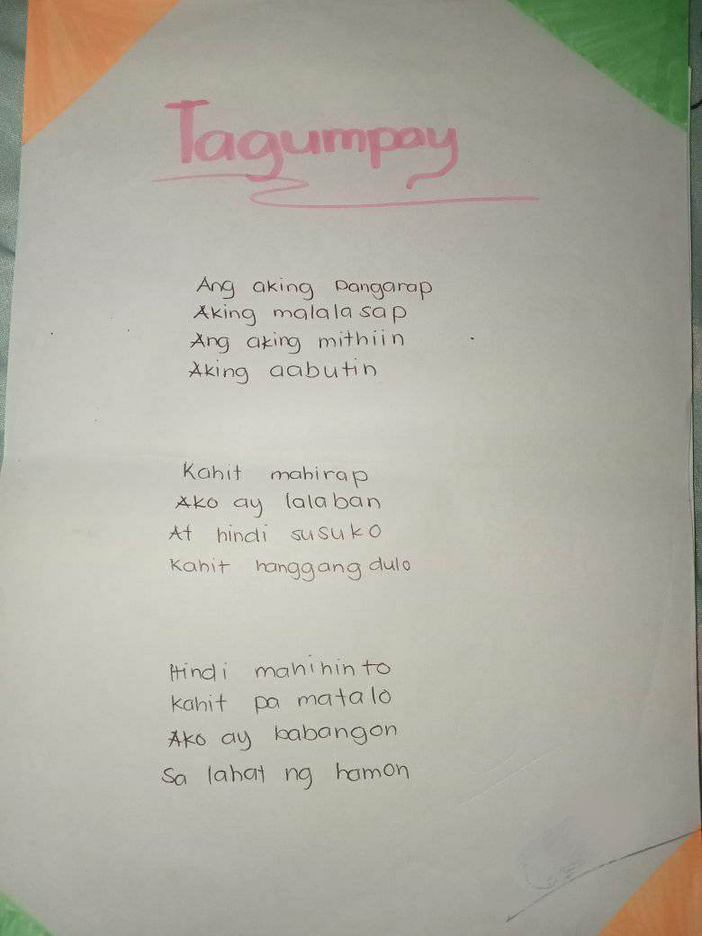 Tagumpay
Ang aking Pangarap
Aking malalasap
Ang aking mithiin
Aking aabutin
Kahit mahirap
Ako ay lalaban
At hindi susuko
Kahit hanggang dulo
Hindi mahihinto
Kahit pa matalo
Ako ay babangon
Sa lahat ng hamon